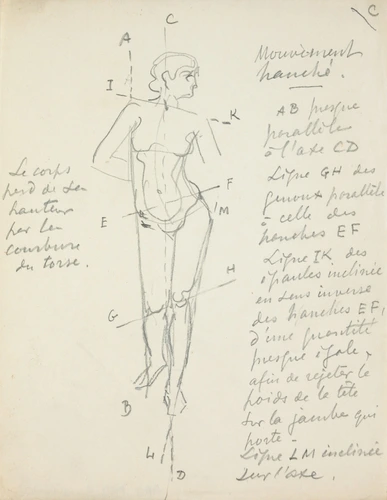 C
C
A
I
K
F
M
E
H
G
B
L
D
Le corps
perd de sa
hauteur
par la
courbure
du torse.
Mouvement
hanché.
AB presque
parallèle
à l'axe CD
Ligne GH des
genoux parallèle
à celle des
hanches EF
Ligne IK des
épaules inclinée
en sens inverse
des hanches EF,
d'une quantité
presque égale,
afin de rejeter le
poids de la tête
sur la jambe qui
porte.
Ligne LM inclinée
sur l'axe.